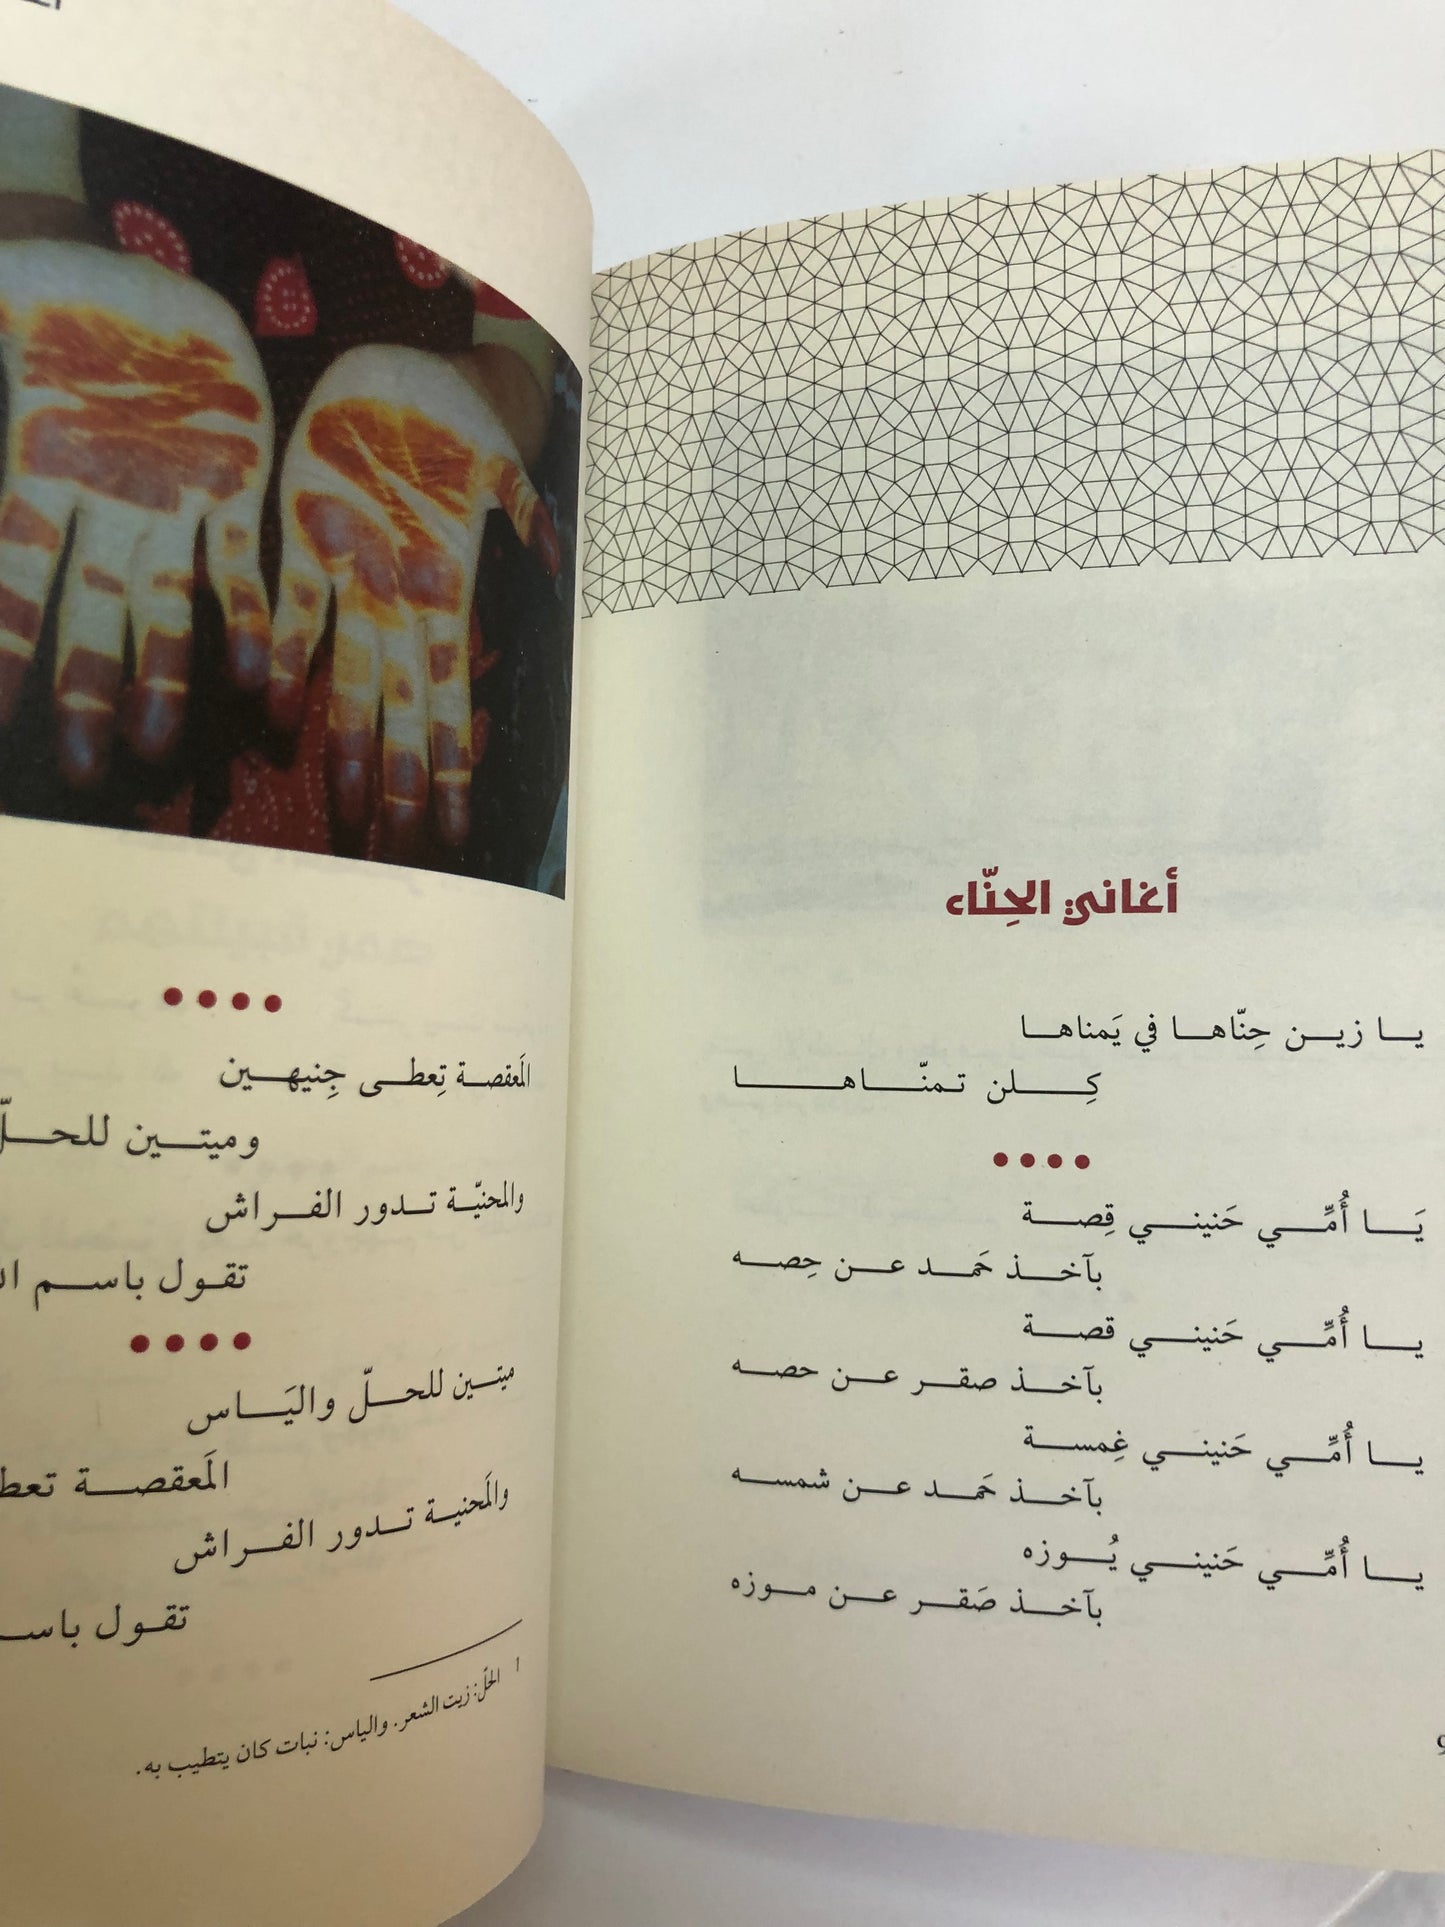 أغاني الحِنّاء
يـا زيـن حِنّاها في يَمناها
كِـلن تـمنّـاهـا
يَـا أُمِّـي حَنيني قِصـة
بآخـذ حَمـد عـن حِصـه
يـا أُمِّـي حَنيني قصـة
بآخـذ صقـر عـن حصـه
يـا أُمِّـي حَنيني غِمسـة
بآخـذ حَمـد عـن شمسـه
يـا أُمِّـي حَنيني يُـوزه
بآخـذ صَقـر عـن مـوزه
المَعقصـة تِعطـى جِنيهـين
وميتـين للحـلّ
والمحنيّـة تـدور الفـراش
تقـول باسـم
ميتـين للحـلّ واليَـاس
المَعقصـة
والمَحنيـة تـدور الفـراش
تقـول
1 الحَلّ: زيت الشعر. والياس: نبات كان يتطيب به.